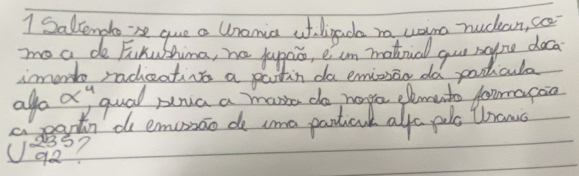 1 Saltendo-se que o Urania utilizado na usina nuclear, co-
mo a de Fukushima, no Japão, é um material que sofre deca-
imento radioativo a partir da emissão da partícula
alfa α⁴, qual seria a massa do novo elemento formação
a partir de emissão de uma partícula alfa pelo Uranio
U 235 92?